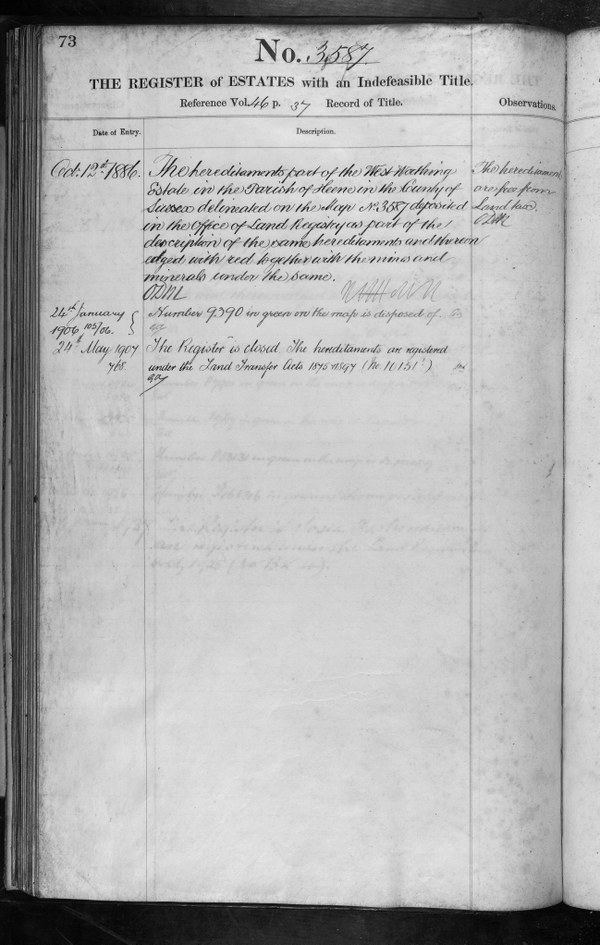 73
No. 3587
THE REGISTER of ESTATES with an Indefeasible Title.
Reference Vol. 46 p. 37 Record of Title.
Observations.
Date of Entry.
Description.
Oct: 12th 1886.
The hereditaments part of the West Worthing
Estate in the Parish of Heene in the County of
Sussex delineated on the Map No. 3587 deposited
in the Office of Land Registry as part of the
description of the same hereditaments and thereon
edged with red together with the mines and
minerals under the same.
The hereditaments
are free from
Land tax.
24th January
1906 105/06.
Number 9390 in green on the map is disposed of.
24th May 1907
768.
The Register is closed. The hereditaments are registered
under the Land Transfer Acts 1875 & 1897 (No. 10151)